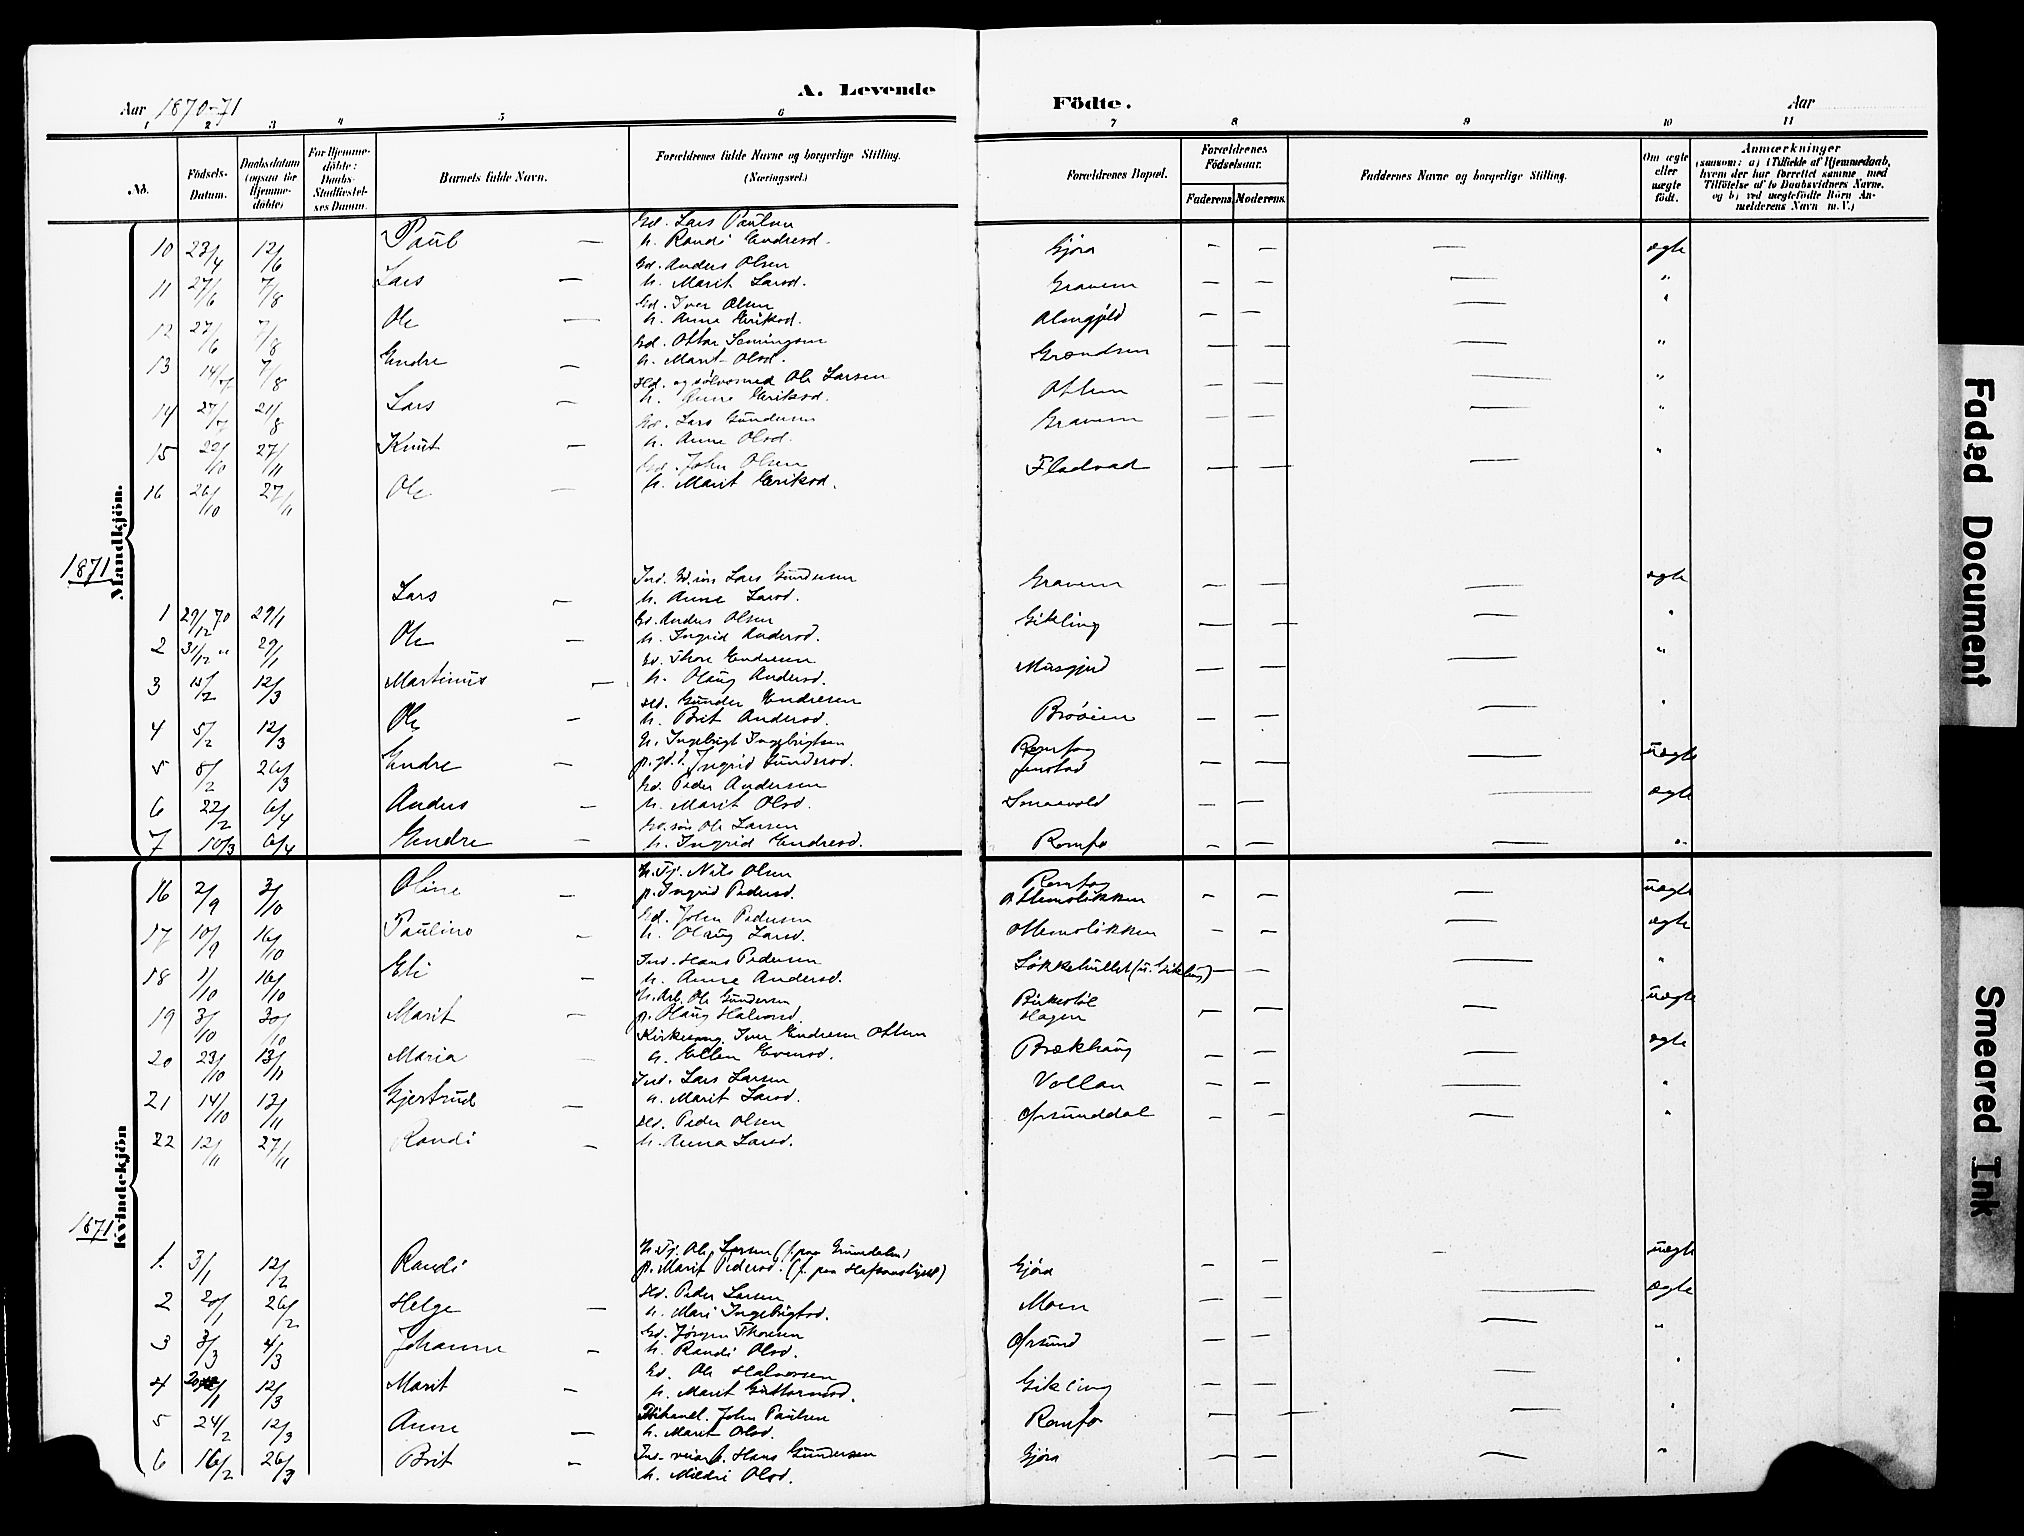 A. Levende Födte.
Aar 1870-71 Aar
1 2 3 4 5 6 7 8 9 10 11
No.
Födsels-Datum.
Daabsdatum (ogsaa for Hjemme-döbte)
For Hjemme-döbte: Daabs-Stadfæstel-ses Datum.
Barnets fulde Navn.
Forældrenes fulde Navne og borgerlige Stilling. (Næringsvei.)
Forældrenes Bopæl.
Forældrenes Födselsaar.
Faderens. Moderens.
Faddernes Navne og borgerlige Stilling.
Om ægte eller uægte födt.
Anmærkninger
(saasom: a) i Tilfælde af Hjemmedaab, hvem der har forrettet samme med Tilföielse af to Daabsvidners Navne, og b) ved uægtefödte Börn An-melderens Navn m. V.)
Mandkjön.
10 23/4 12/6 Paul — Gd. Lars Paulsen
h. Randi Endresd. Gjøra — — — ægte
11 27/6 7/8 Lars — Gd. Anders Olsen
h. Marit Larsd. Gravem — — — "
12 27/6 7/8 Ole — Gd. Iver Olsen
h. Anne Eriksd. Almgjeld — — — "
13 14/7 7/8 Endre — Gd. Ottar Semingsen
h. Marit Olsd. Grændsen — — — "
14 27/7 21/8 Lars — Hd. og sølvsmed Ole Larsen
h. Anne Eriksd. Ottem — — — "
15 22/10 27/11 Knut — Gd. Lars Gundersen
h. Anne Olsd. Gravem — — — "
16 26/10 27/11 Ole — Gd. John Olsen
h. Marit Eriksd. Fladvad — — — "
1871
1 29/12 70 29/1 Lars — Ind. Lars Gundersen
h. Anne Larsd. Gravem — — — ægte
2 31/12 " 29/1 Ole — Gd. Anders Olsen
h. Ingrid Andersd. Gikling — — — "
3 12/3 Martinus — Gd. Thore Endresen
h. Olaug Andersd. Musgjerd — — — "
4 5/2 12/3 Ole — Hd. Gunder Endresen
h. Brit Andersd. Brøien — — — "
5 8/2 26/3 Endre — U. Ingebrigt Ingebrigtsen
p. Ingrid Gundersd. Romfog
Jenstad — — — uægte
6 22/2 6/4 Anders — Gd. Peder Andersen
h. Marit Olsd. Smaavold — — — ægte
7 10/3 6/4 Endre — Gd.søn Ole Larsen
h. Ingrid Endresd. Romfo — — — "
Kvindekjön
16 2/9 3/10 Oline — U. Tj. Nils Olsen
p. Ingrid Pedersd. Romfog
Hemsløkken — — — uægte
17 10/9 16/10 Pauline — Gd. John Pedersen
h. Olaug Larsd. Hemsløkken — — — ægte
18 11/10 16/10 Eli — Ind. Hans Pedersen
h. Anne Andersd. Løkkehullet (u. Gikling) — — — "
19 3/10 30/10 Marit — U. Arb. Ole Gundersen
p. Olaug Halvorsd. Birkestøl
Hagen — — — uægte
20 23/10 13/11 Maria — Kirkesang. Iver Endresen Ottem
h. Ellen Evensd. Brækhaug — — — ægte
21 14/10 13/11 Gjertrud — Ind. Lars Larsen
h. Marit Larsd. Vollan — — — "
22 12/11 27/11 Randi — Hd. Peder Olsen
h. Anna Larsd. Ørsunddal — — — "
1871
1. 3/1 12/2 Randi U. Tj. Ole Larsen (f. paa Grøndalen)
p. Marit Pedersd. (f. paa Hafsaaslykk) Gjøra — — — uægte
2 20/1 26/2 Helge — Hd. Peder Larsen
h. Mari Ingebrigtsd. Moen — — — ægte
3 3/3 4/3 Johanne — Gd. Jørgen Thoresen
h. Randi Olsd. Ørsund — — — "
4 20/1 12/3 Marit — Gd. Ole Halvorsen
h. Marit Guttormsd. Gikling — — — "
5 24/2 12/3 Anne — John Paulsen
h. Marit Olsd. Romfo — — — "
6 16/2 26/3 Brit — Ind. veiarb. Hans Gundersen
h. Mildri Olsd. Gjøra — — — "
Faded Document
Smeared Ink